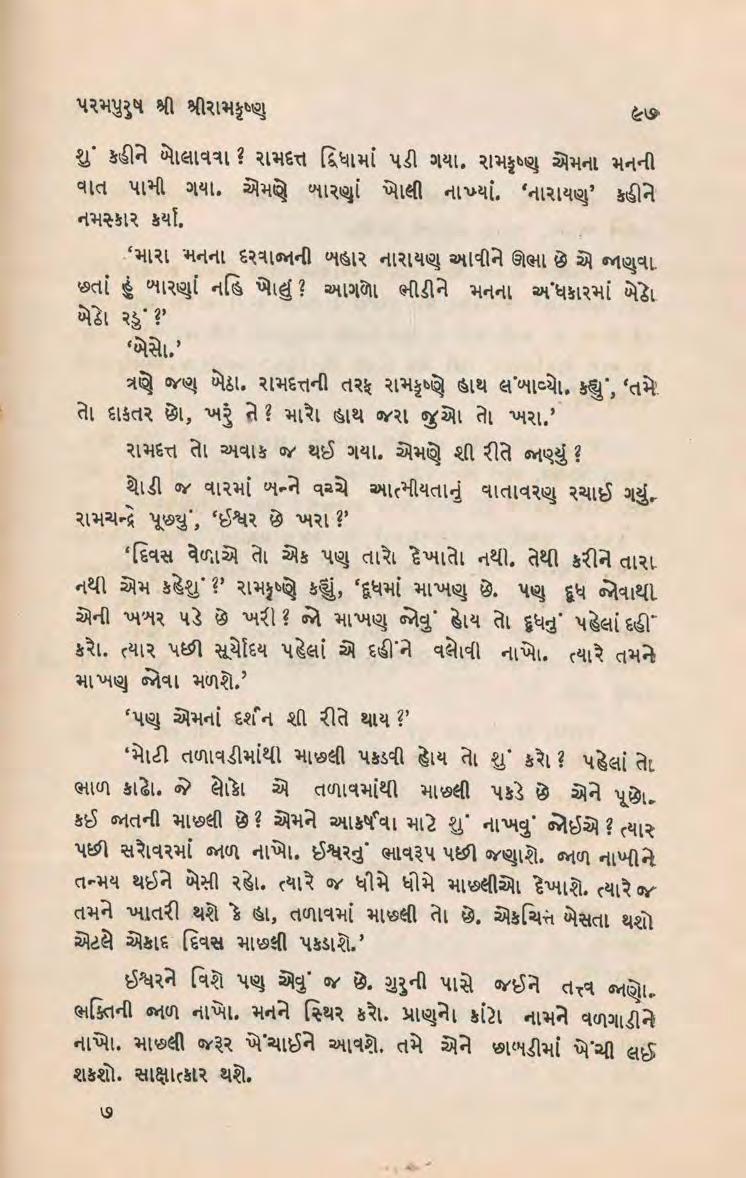 પરમપુરુષ શ્રી શ્રીરામકૃષ્ણ ૯૭
શું કહીને બોલાવવા ? રામદત્ત દ્વિધામાં પડી ગયા. રામકૃષ્ણ એમના મનની
વાત પામી ગયા. એમણે બારણાં ખોલી નાખ્યાં. ‘નારાયણ’ કહીને
નમસ્કાર કર્યા.
‘મારા મનના દરવાજાની બહાર નારાયણ આવીને ઊભા છે એ જાણવા
છતાં હું બારણાં નહિ ખોલું ? આગળો ભીડીને મનના અંધકારમાં બેઠો
બેઠો રડું ?’
‘બેસો.’
ત્રણે જણ બેઠા. રામદત્તની તરફ રામકૃષ્ણે હાથ લંબાવ્યો. કહ્યું, ‘તમે
તો દાકતર છો, ખરું ને ? મારો હાથ જરા જુઓ તો ખરા.’
રામદત્ત તો અવાક જ થઈ ગયા. એમણે શી રીતે જાણ્યું ?
થોડી જ વારમાં બન્ને વચ્ચે આત્મીયતાનું વાતાવરણ રચાઈ ગર્યું.
રામચન્દ્રે પૂછ્યું, ‘ઈશ્વર છે ખરા ?’
‘દિવસ વેળાએ તો એક પણ તારો દેખાતો નથી. તેથી કરીને તારા
નથી એમ કહેશું ?’ રામકૃષ્ણે કહ્યું, ‘દૂધમાં માખણ છે. પણ દૂધ જોવાથી
એની ખબર પડે છે ખરી ? જો માખણ જોવું હોય તો દૂધનું પહેલાં દહીં
કરો. ત્યાર પછી સૂર્યોદય પહેલાં એ દહીંને વલોવી નાખો. ત્યારે તમને
માખણ જોવા મળશે.’
‘પણ એમનાં દર્શન શી રીતે થાય ?’
‘મોટી તળાવડીમાંથી માછલી પકડવી હોય તો શું કરો ? પહેલાં તો
ભાળ કાઢો. જે લોકો એ તળાવમાંથી માછલી પકડે છે એને પૂછો.
કઈ જાતની માછલી છે ? એમને આકર્ષવા માટે શું નાખવું જોઈએ ? ત્યાર
પછી સરોવરમાં જાળ નાખો. ઈશ્વરનું ભાવરૂપ પછી જણાશે. જાળ નાખીને
તન્મય થઈને બેસી રહો. ત્યારે જ ધીમે ધીમે માછલીઓ દેખાશે. ત્યારે જ
તમને ખાતરી થશે કે હા, તળાવમાં માછલી તો છે. એકચિત્ત બેસતા થશો
એટલે એકાદ દિવસ માછલી પકડાશે.’
ઈશ્વરને વિશે પણ એવું જ છે. ગુરુની પાસે જઈને તત્ત્વ જાણો.
ભક્તિની જાળ નાખો. મનને સ્થિર કરો. પ્રાણનો કાંટો નામને વળગાડીને
નાખો. માછલી જરૂર ખેંચાઈને આવશે. તમે એને છાબડીમાં ખેંચી લઈ
શકશો. સાક્ષાત્કાર થશે.
૭